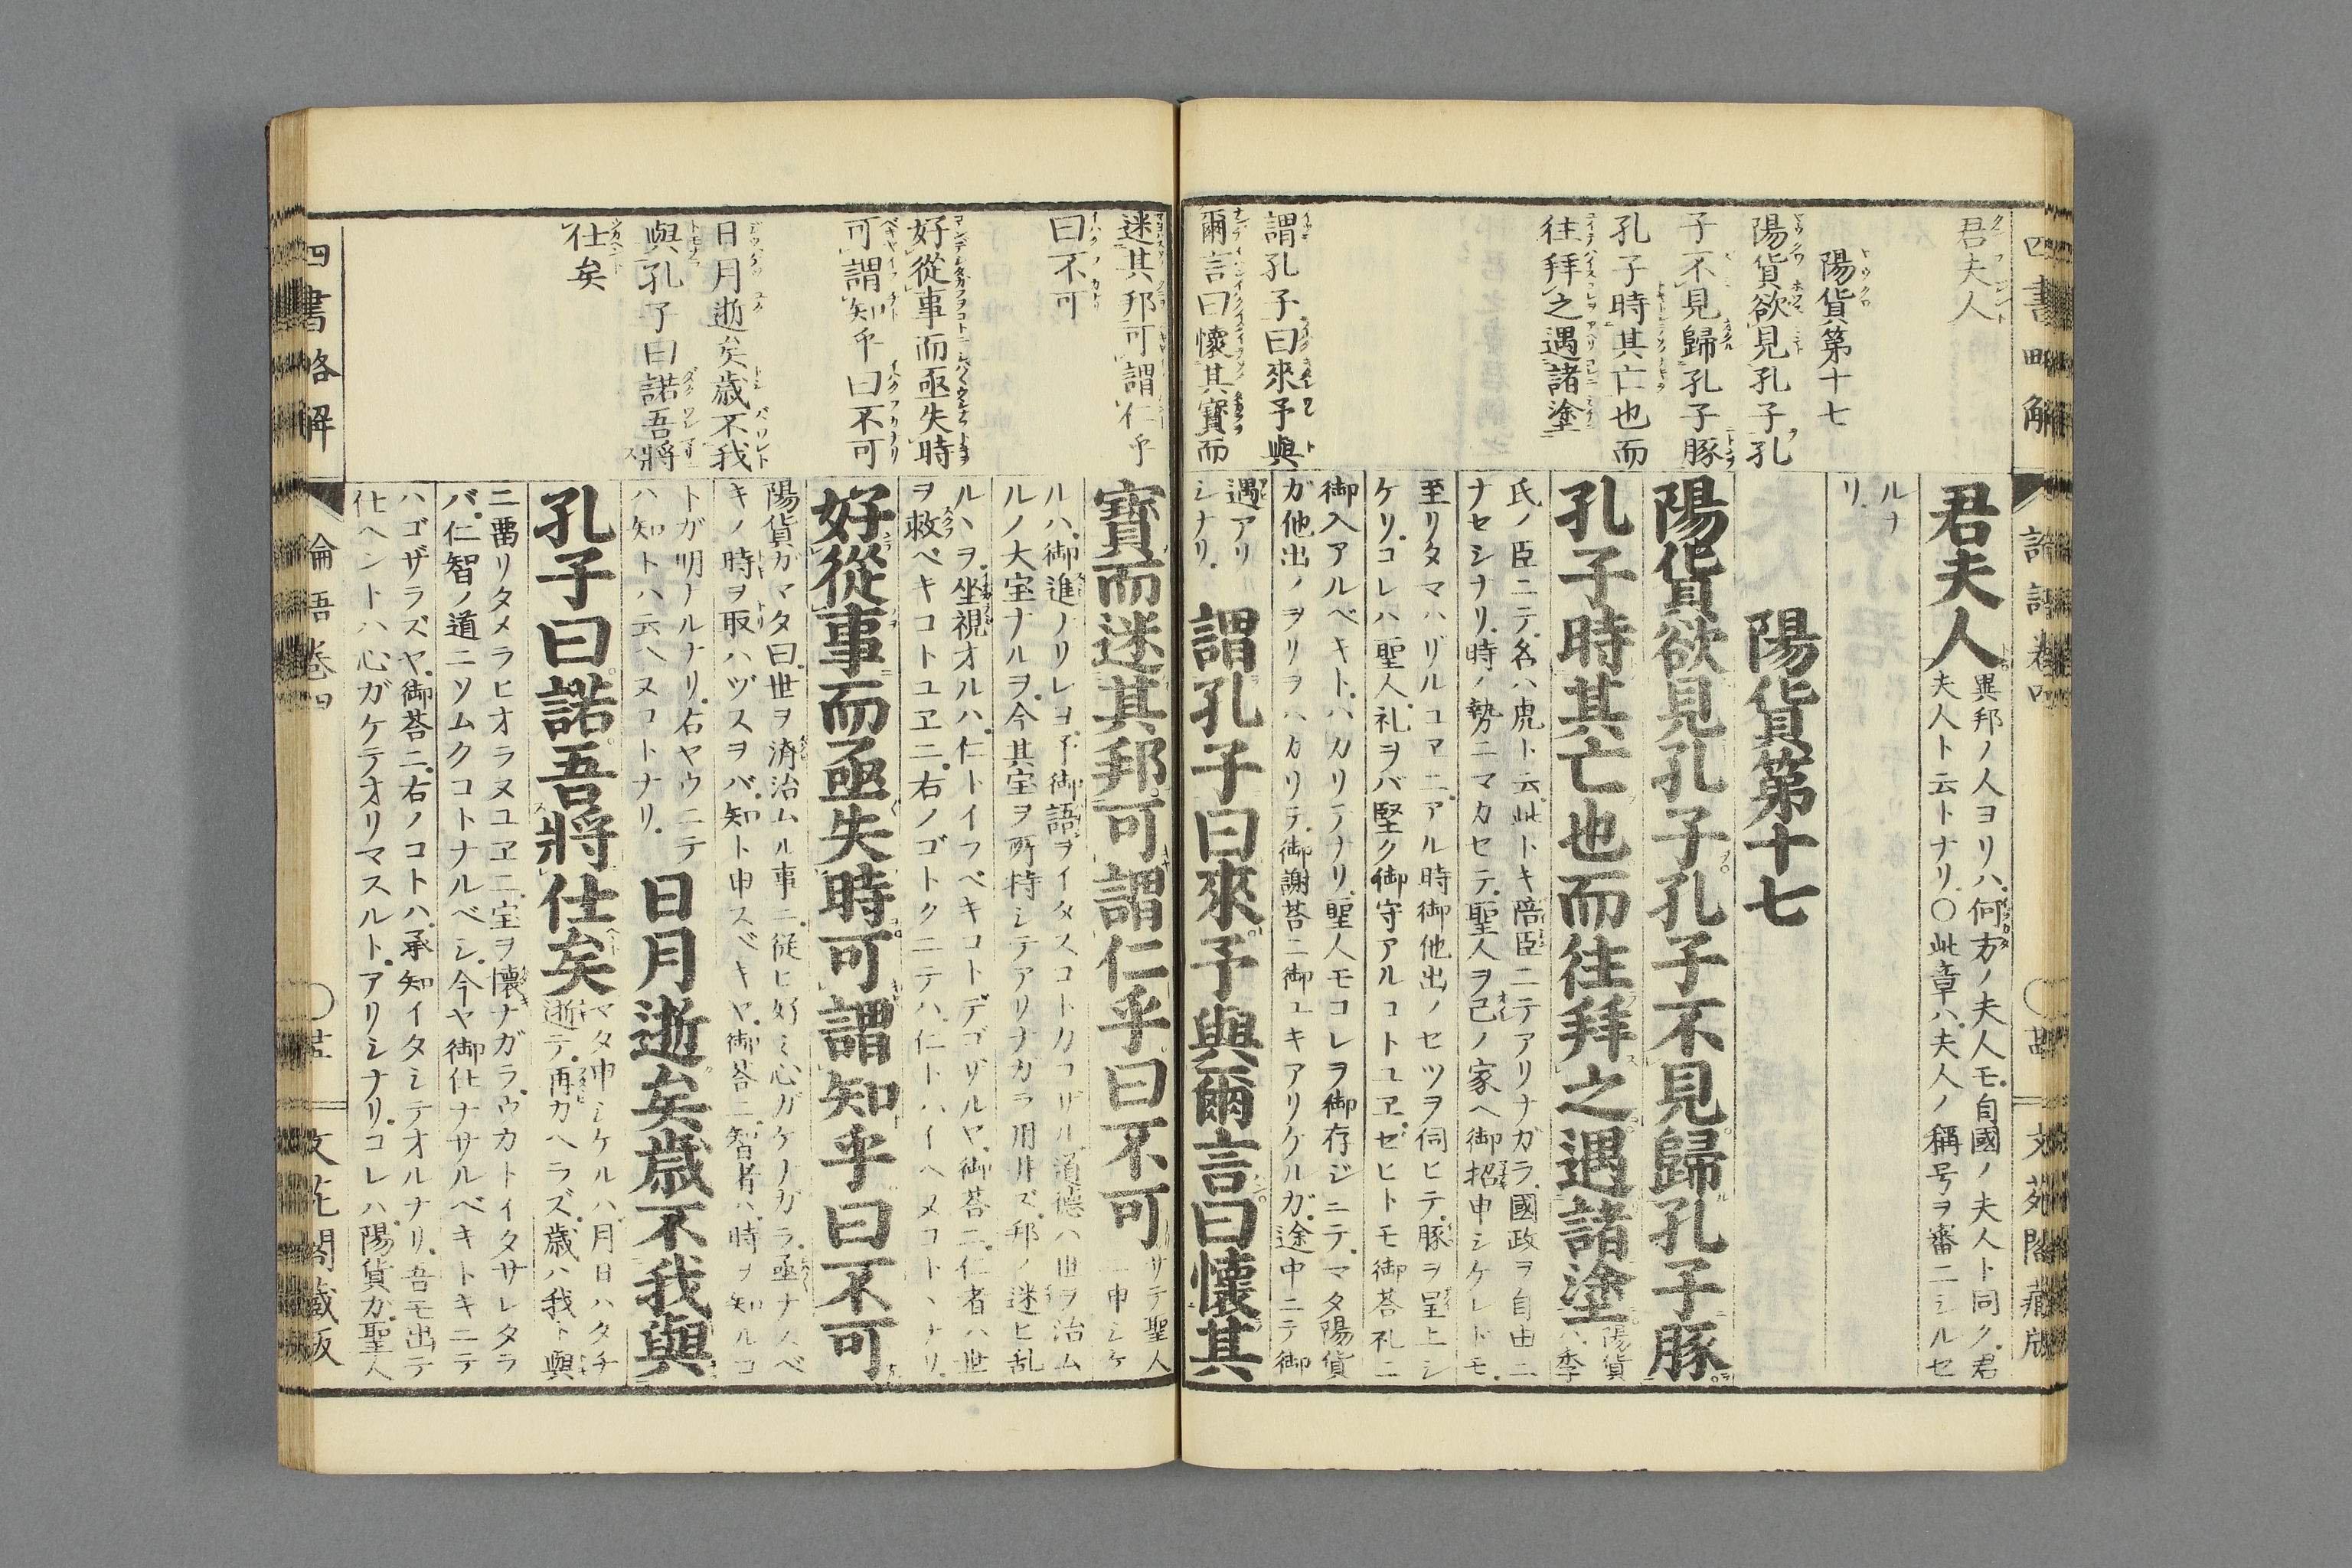 四書略解
論語卷四
君夫人
陽貨第十七
陽貨欲見孔子孔
子不見歸孔子豚
孔子時其亡也而
往拜之遇諸塗
謂孔子曰來予與
爾言曰懷其寶而
君夫人
異邦ノ人ヨリハ何方ノ夫人モ自國ノ夫人ト同ク君
夫人ト云トナリ○此章ハ夫人ノ稱号ヲ審ニシルセ
ルナ
リ
陽貨第十七
陽貨欲見孔子孔子不見歸孔子豚
孔子時其亡也而往拜之遇諸塗
陽貨
ハ季
氏ノ臣ニテ名ハ虎ト云此トキ陪臣ニテアリナガラ國政ヲ自由ニ
ナセシナリ時ノ勢ニマカセテ聖人ヲ己ノ家ヘ御招申シケレドモ
至リタマハザルユヱニアル時御他出ノセツヲ伺ヒテ豚ヲ呈上シ
ケリコレハ聖人礼ヲバ堅ク御守アルコトユヱゼヒトモ御荅礼ニ
御入アルベキトハカリテナリ聖人モコレヲ御存ジニテマタ陽貨
ガ他出ノヲリヲハカリテ御謝荅ニ御ユキアリケルガ途中ニテ御
遇アリ
シナリ
謂孔子曰來予與爾言曰懷其
迷其邦可謂仁乎
曰不可
好從事而亟失時
可謂知乎曰不可
日月逝矣歲不我
與孔子曰諾吾將
仕矣
寶而迷其邦可謂仁乎曰不可
サテ聖人
申シケ
ルハ御進ノリレヨ予御語ヲイタスコトカコザル道德ハ世ヲ治ム
ルノ大宝ナルヲ今其宝ヲ所持シテアリナカラ用井ズ邦ノ迷ヒ乱
ルヽヲ坐視オルハ仁トイフベキコトデゴザルヤ御荅ニ仁者ハ世
ヲ救ベキコトユヱニ右ノゴトクニテハ仁トハイヘヌコトヽナリ
好從事而亟失時可謂知乎曰不可
陽貨ガマタ曰世ヲ濟治ムル事ニ従ヒ好ミ心ガケナガラ亟ナスベ
キノ時ヲ取ハヅスヲバ知ト申スベキヤ御荅ニ智者ハ時ヲ知ルコ
トガ明ナルナリ右ヤウニテ
ハ知トハ云ヘヌコトナリ
日月逝矣歲不我與
孔子曰諾吾將仕矣
マタ申シケルハ月日ハタチ
逝テ再カヘラズ歲ハ我ト與
ニ畱リタメラヒオラヌユヱニ宝ヲ懷ナガラウカトイタサレタラ
バ仁智ノ道ニソムクコトナルベシ今ヤ御仕ナサルベキトキニテ
ハゴザラズヤ御荅ニ右ノコトハ承知イタシテオルナリ吾モ出テ
仕ヘントハ心ガケテオリマスルトアリシナリコレハ陽貨ガ聖人
四書略解
論語卷四